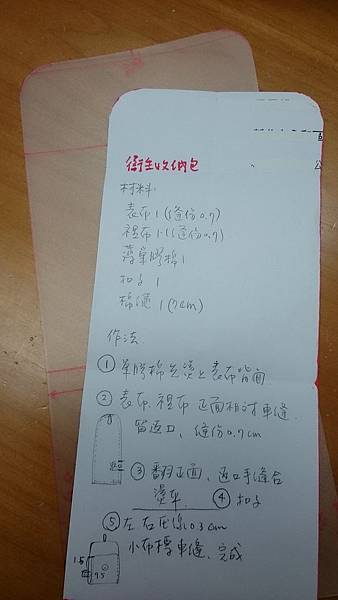 衛生收納包
材料:
表布1(縫份0.7)
裡布1(縫份0.7)
薄單膠棉1
扣子1
棉繩1(7cm)
作法:
①單膠棉先燙上表布背面
②表布、裡布正面相対車縫
留返口、縫份0.7cm
③翻正面、返口手縫合
燙平 ④扣子
⑤左右压線0.3cm
小布標車縫、完成
1.5
9.5